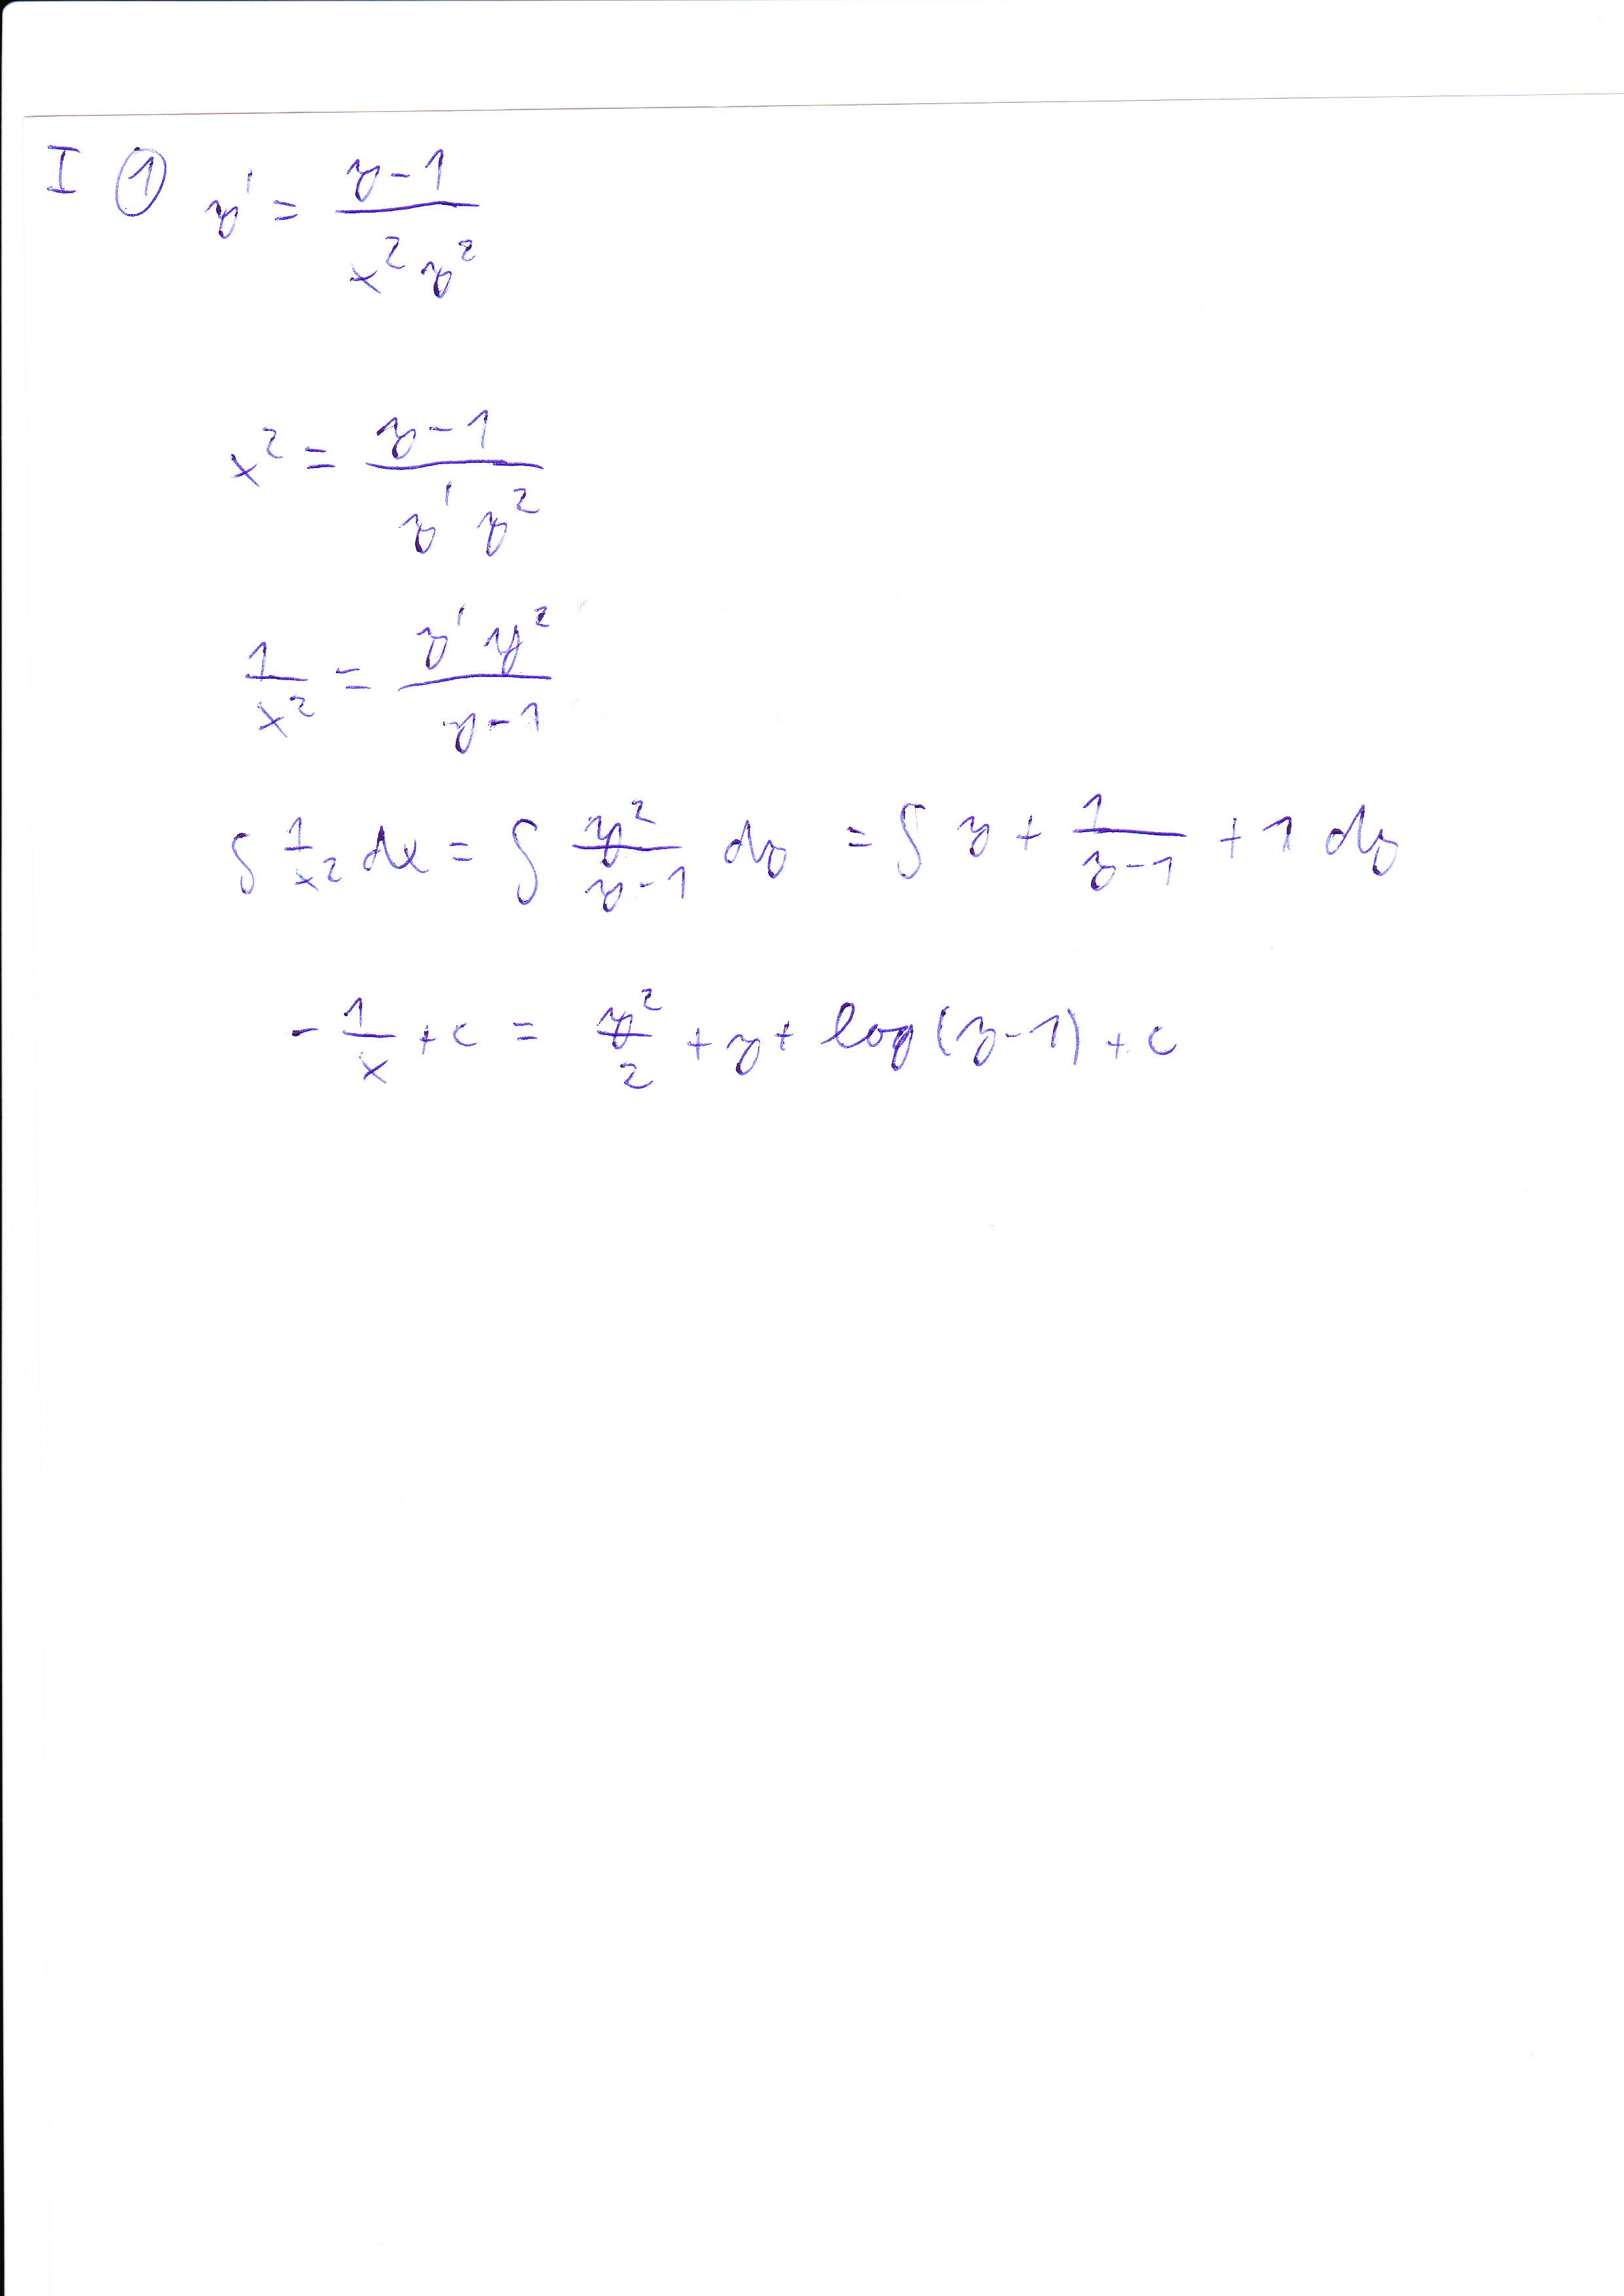 I ① y' = (y-1)/(x² y²)
x² = (y-1)/(y' y²)
1/x² = (y' y²)/(y-1)
∫ 1/x² dx = ∫ y²/(y-1) dy = ∫ y + 1/(y-1) + 1 dy
- 1/x + c = y²/2 + y + log(y-1) + c